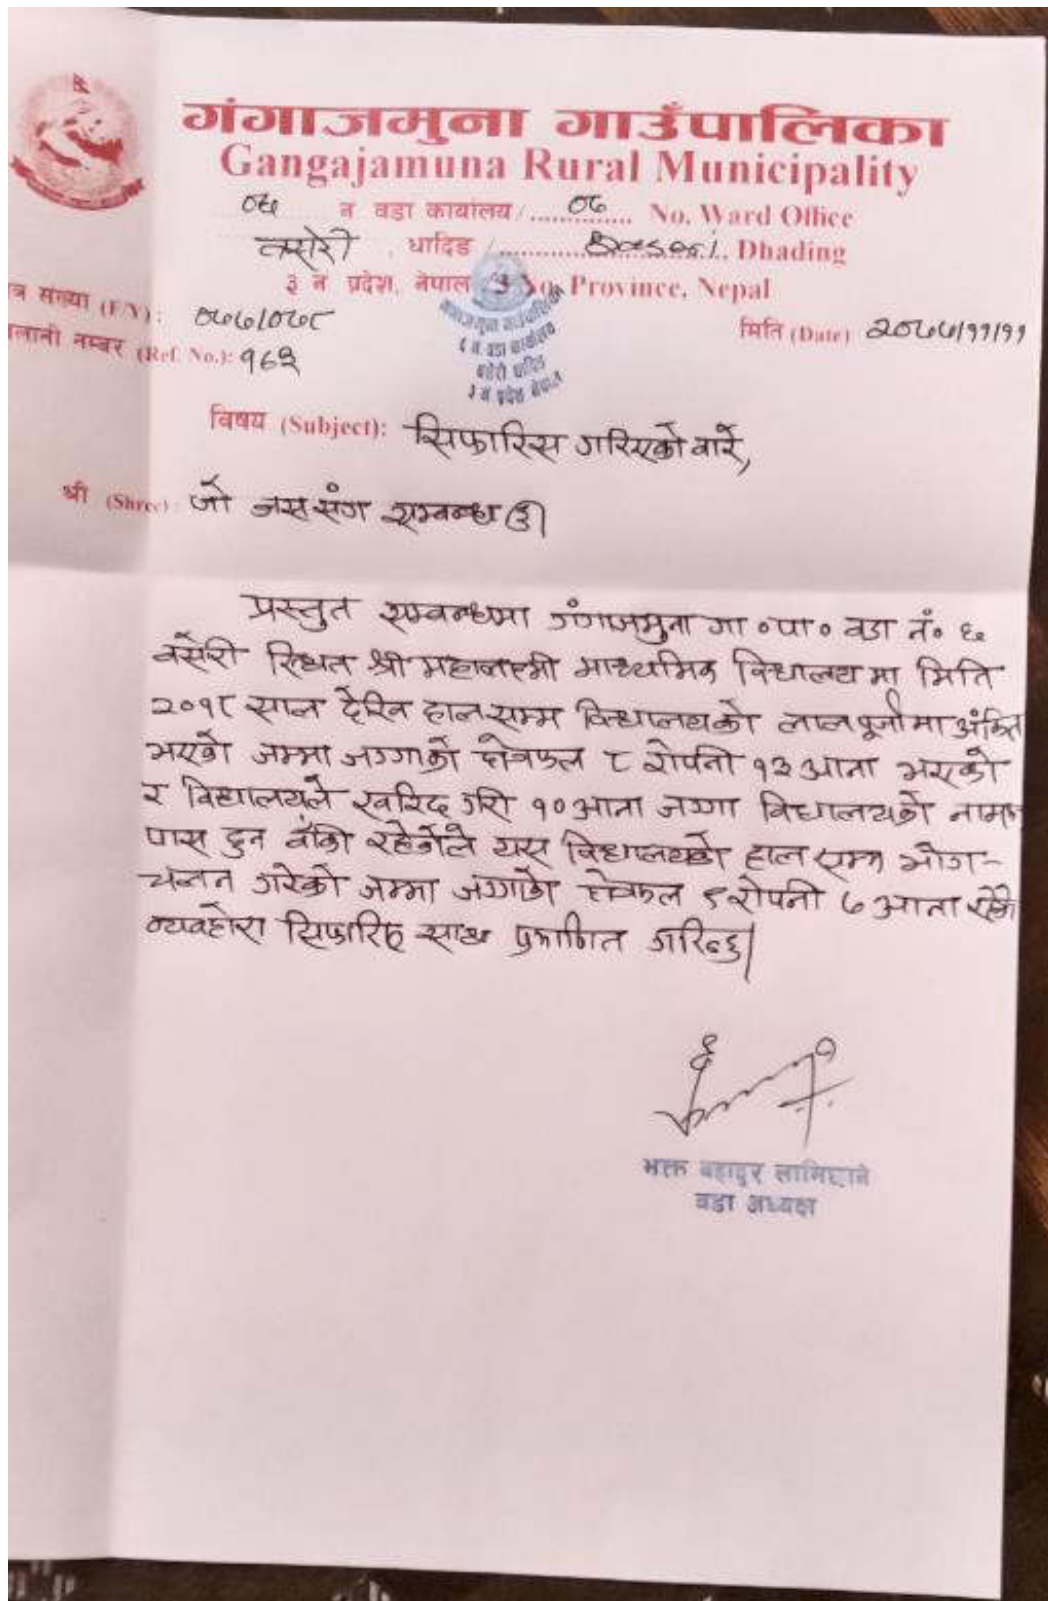 गंगाजमुना गाउँपालिका
Gangajamuna Rural Municipality
०६ न वडा कार्यालय / ............ 06 ............ No. Ward Office
बसेरी, धादिङ / ............ Baseri, Dhading
३ न प्रदेश, नेपाल / 3 No. Province, Nepal
त्र संख्या (F/Y): ०७७/०७८
लानी नम्बर (Ref. No.): १६३
मिति (Date) २०७७/११/११
गंगाजमुना गाउँपालिका
६ न. वडा कार्यालय
बसेरी धादिङ
३ न प्रदेश नेपाल
विषय (Subject): सिफारिस गरिएको बारे,
श्री (Shree): जो जससंग सम्बन्ध छ।
प्रस्तुत सम्बन्धमा गंगाजमुना गा०पा० वडा नं० ६
बसेरी स्थित श्री महालक्ष्मी माध्यमिक विद्यालयमा मिति
२०१८ साल देखि हालसम्म विद्यालयको लालपूर्जामा अंकित
भएको जम्मा जग्गाको क्षेत्रफल ८ रोपनी १३ आना भएको
र विद्यालयले खरिद गरी १० आना जग्गा विद्यालयको नाममा
पास हुन बाँकी रहेकोले यस विद्यालयको हाल सम्म भोग-
चलन गरेको जम्मा जग्गाको क्षेत्रफल ९ रोपनी ७ आना रहेको
व्यवहोरा सिफारिस साथ प्रमाणित गरिन्छ।
भक्त बहादुर लामिछाने
वडा अध्यक्ष